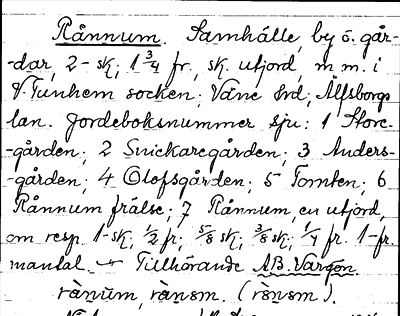 Rånnum. Samhälle, by o. går-
-dar, 2 - sk; 1 3/4 fr., sk. utjord, m.m. i
V. Tunhem socken; Väne hrd; Älfsborgs
län. Jordeboksnummer sju: 1 Store-
-gården; 2 Snickaregården; 3 Anders-
-gården; 4 Olofsgården; 5 Tomten; 6
Rånnum frälse; 7 Rånnum, en utjord,
om resp. 1-sk; 1/2 fr; 5/8 sk; 3/8 sk; 1/4 fr. 1-fr.
mantal. Tillhörande AB. Vargön.
rànùm, rànsm. (rònsm).